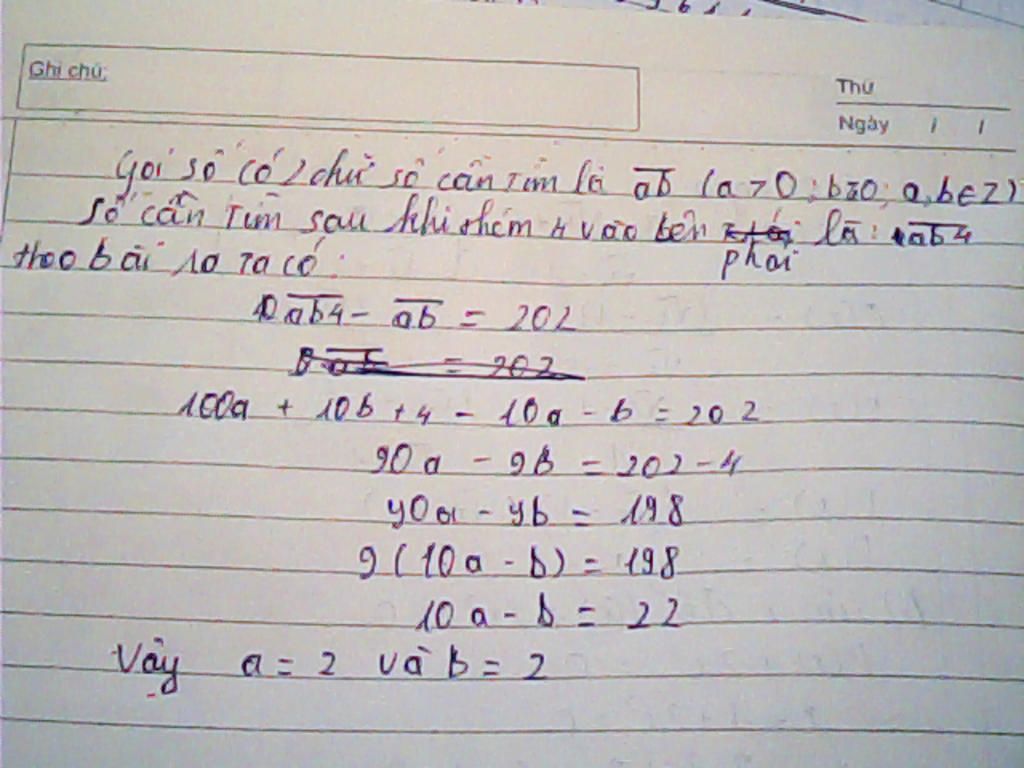 Ghi chú:
Thứ
Ngày / /
Gọi số có 2 chữ số cần tìm là ab (a > 0; b≥0; a,b ∈ Z)
số cần tìm sau khi thêm 4 vào bên phải là: ab4
theo bài ra ta có:
ab4 - ab = 202
ab = 202
100a + 10b + 4 - 10a - b = 202
90a - 9b = 202-4
90a - 9b = 198
9(10a - b) = 198
10a - b = 22
Vậy a = 2 và b = 2